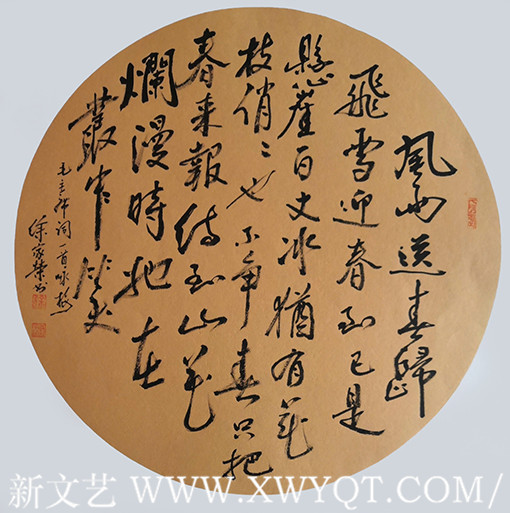 風雨送春歸
飛雪迎春到已是
懸崖百丈冰猶有花
枝俏〻也不爭春只把
春來報待到山花
爛漫時她在
叢中笑
毛主席词一首咏梅
徐家榮书
新文艺 WWW.XWYQT.COM/